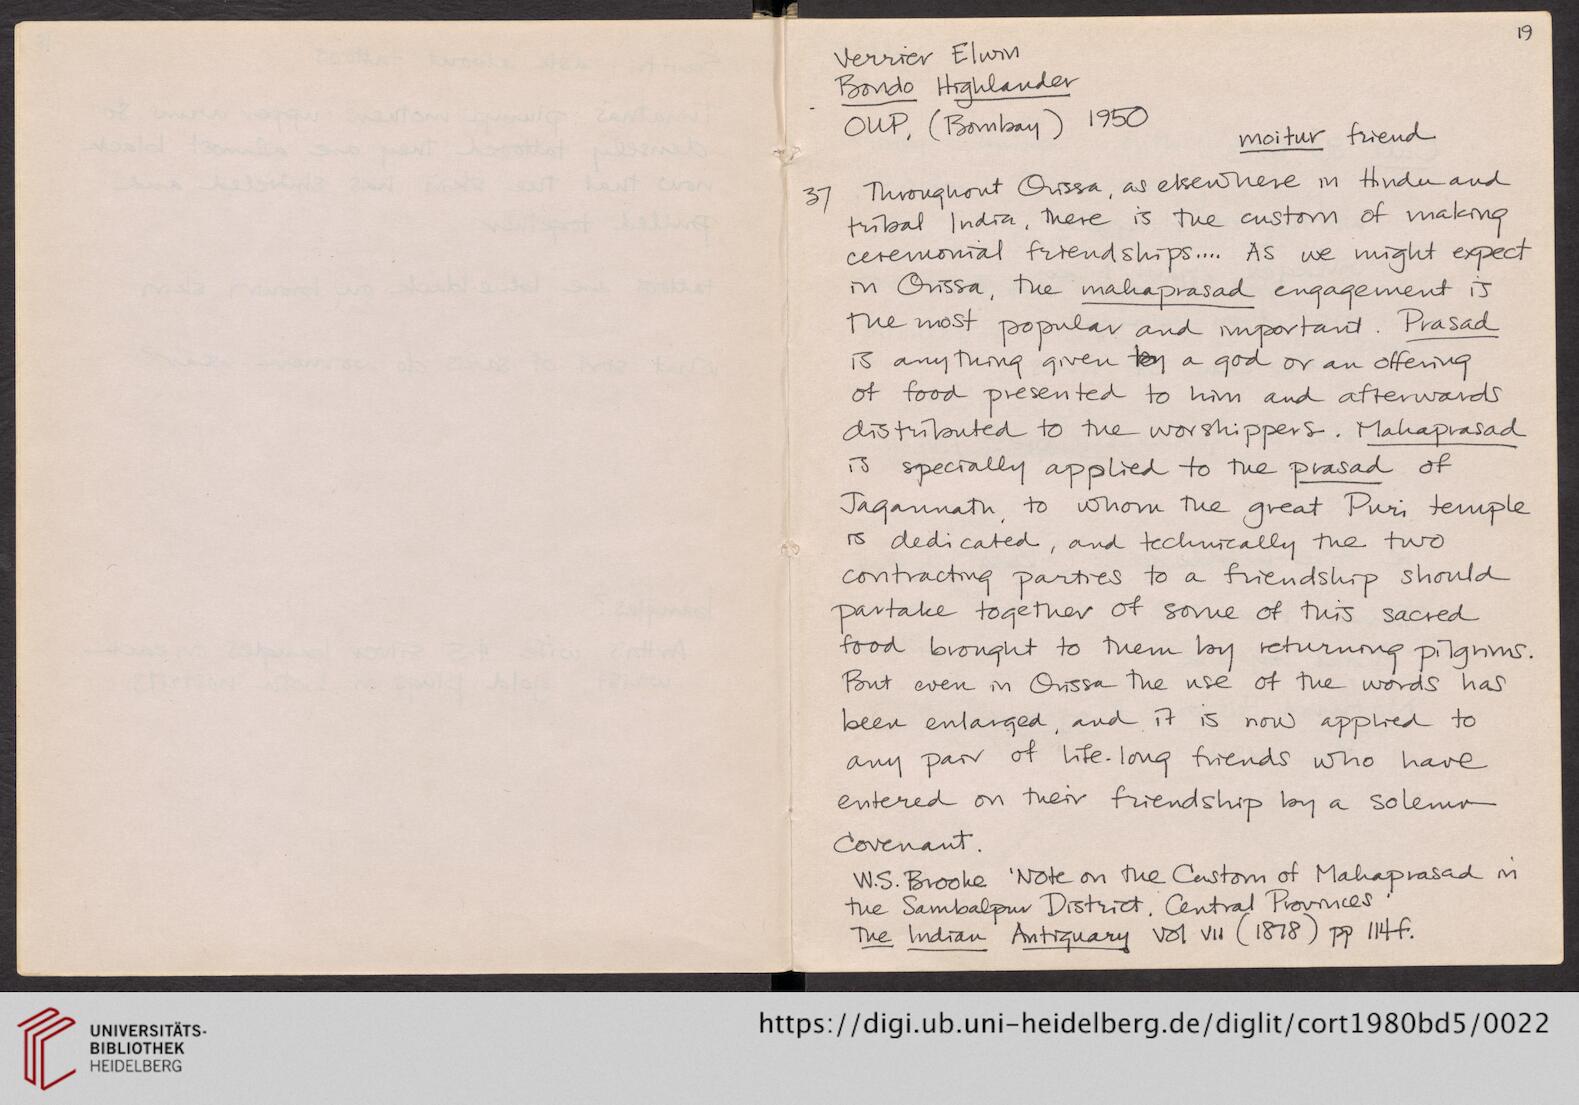 19
Verrier Elwin
Bondo Highlander
OUP, (Bombay) 1950
moitur friend
37 Throughout Orissa, as elsewhere in Hindu and
tribal India, there is the custom of making
ceremonial friendships.... As we might expect
in Orissa, the mahaprasad engagement is
the most popular and important. Prasad
is anything given by a god or an offering
of food presented to him and afterwards
distributed to the worshippers. Mahaprasad
is specially applied to the prasad of
Jagannath, to whom the great Puri temple
is dedicated, and technically the two
contracting parties to a friendship should
partake together of some of this sacred
food brought to them by returning pilgrims.
But even in Orissa the use of the words has
been enlarged, and it is now applied to
any pair of life-long friends who have
entered on their friendship by a solemn
covenant.
W.S. Brooke 'Note on the Custom of Mahaprasad in
the Sambalpur District, Central Provinces'
The Indian Antiquary vol VII (1878) pp 114f.
UNIVERSITÄTS-
BIBLIOTHEK
HEIDELBERG
https://digi.ub.uni-heidelberg.de/diglit/cort1980bd5/0022